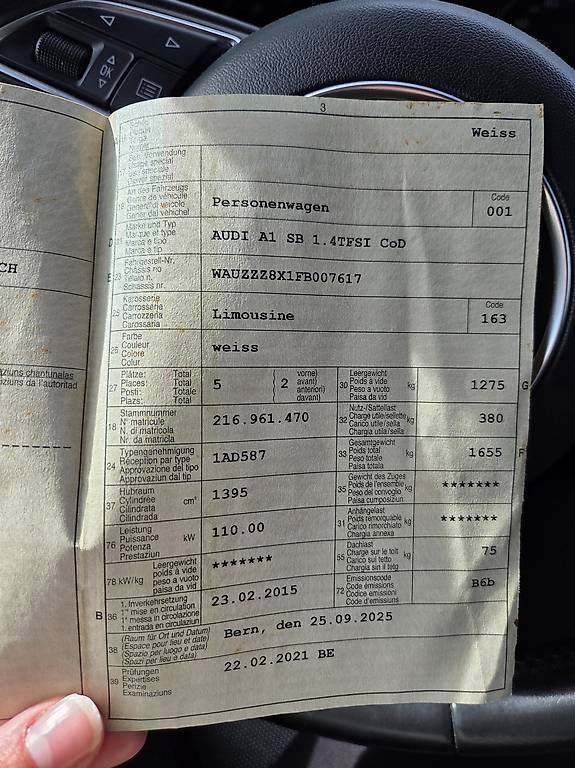 OK
3
Weiss
Art des Fahrzeugs
Genre de véhicule
Genere di veicolo
Gener dal vehichel
Personenwagen
Code
001
D
Marke und Typ
Marque et type
Marca e tipo
Marca e tip
AUDI A1 SB 1.4TFSI CoD
E 23
Fahrgestell-Nr.
Châssis no
Telaio n.
Schassis nr.
WAUZZZ8X1FB007617
CH
25
Karosserie
Carrosserie
Carrozzeria
Carossaria
Limousine
Code
163
26
Farbe
Couleur
Colore
Colur
weiss
27
Plätze: Total
Places: Total
Posti: Totale
Plazs: Totale
5
2
vorne)
avant)
anteriori)
davant)
30
Leergewicht
Poids à vide
Peso a vuoto
Paisa da vid
kg
1275
G
18
Stammnummer
N° matricule
N. di matricola
Nr. da matricla
216.961.470
32
Nutz-/Sattellast
Charge utile/sellette
Carico utile/sella
Chargia utila/sella
kg
380
24
Typengenehmigung
Réception par type
Approvazione del tipo
Approvaziun dal tip
1AD587
33
Gesamtgewicht
Poids total
Peso totale
Paisa totala
kg
1655
F
37
Hubraum
Cylindrée
Cilindrata
Cilindrada
cm³
1395
35
Gewicht des Zuges
Poids de l'ensemble
Peso del convoglio
Paisa cumposiziun
kg
*******
76
Leistung
Puissance
Potenza
Prestaziun
kW
110.00
31
Anhängelast
Poids remorquable
Carico rimorchiato
Chargia annexa
kg
*******
78 kW/kg
Leergewicht
poids à vide
peso a vuoto
paisa da vid
*******
55
Dachlast
Charge sur le toit
Carico sul tetto
Chargia sin il tetg
kg
75
B 36
1. Inverkehrsetzung
1re mise en circulation
1a messa in circolazione
1. entrada en circulaziun
23.02.2015
72
Emissionscode
Code émissions
Codice emissioni
Code d'emissiuns
B6b
38
(Raum für Ort und Datum)
(Espace pour lieu et date)
(Spazio per luogo e data)
(Spazi per lieu e data)
Bern, den 25.09.2025
39
Prüfungen
Expertises
Perizie
Examinaziuns
22.02.2021 BE